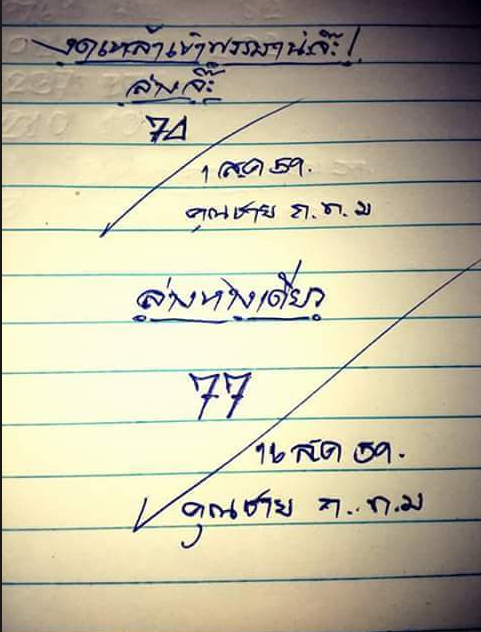 งดเหล้าเข้าพรรษาน่ะจ๊ะ!
ล่างจ๊ะ
74
1 สค 69.
คุณชาย ก.ท.ม
ล่างทางเดียว
77
16 สค 69.
คุณชาย ก.ท.ม